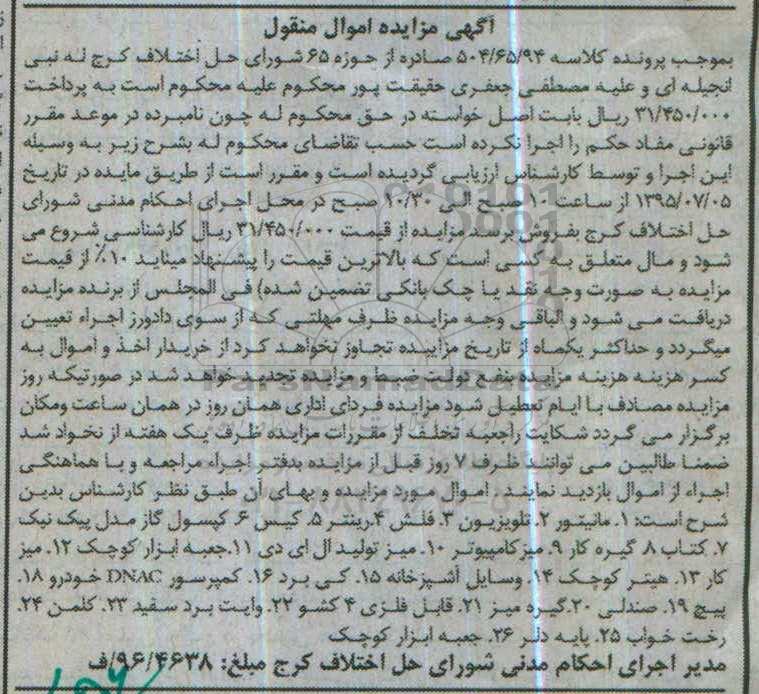 آگهی مزایده اموال منقول
بموجب پرونده کلاسه ۵۰۴/۶۵/۹۴ صادره از حوزه ۶۵ شورای حل اختلاف کرج له نبی
انجیله ای و علیه مصطفی جعفری حقیقت پور محکوم علیه محکوم است به پرداخت
۳۱/۴۵۰/۰۰۰ ریال بابت اصل خواسته در حق محکوم له چون نامبرده در موعد مقرر
قانونی مفاد حکم را اجرا نکرده است حسب تقاضای محکوم له بشرح زیر به وسیله
این اجرا و توسط کارشناس ارزیابی گردیده است و مقرر است از طریق مایده در تاریخ
۱۳۹۵/۰۷/۰۵ از ساعت ۱۰ صبح الی ۱۰/۳۰ صبح در محل اجرای احکام مدنی شورای
حل اختلاف کرج بفروش برسد مزایده از قیمت ۳۱/۴۵۰/۰۰۰ ریال کارشناسی شروع می
شود و مال متعلق به کسی است که بالاترین قیمت را پیشنهاد مینماید ۱۰٪ از قیمت
مزایده به صورت وجه نقد یا چک بانکی تضمین شده) فی المجلس از برنده مزایده
دریافت می شود و الباقی وجه مزایده ظرف مهلتی که از سوی دادورز اجراء تعیین
میگردد و حداکثر یکماه از تاریخ مزایده تجاوز نخواهد کرد از خریدار اخذ و اموال به
کسر هزینه هزینه مزایده بنفع دولت ضبط و مزایده تجدید خواهد شد در صورتیکه روز
مزایده مصادف با ایام تعطیل شود مزایده فردای اداری همان روز در همان ساعت ومکان
برگزار می گردد شکایت راجعبه تخلف از مقررات مزایده ظرف یک هفته از نخواد شد
ضمنا طالبین می توانند ظرف ۷ روز قبل از مزایده بدفتر اجراء مراجعه و با هماهنگی
اجراء از اموال بازدید نمایند. اموال مورد مزایده و بهای آن طبق نظر کارشناس بدین
شرح است: ۱. مانیتور ۲. تلویزیون ۳. فلش ۴.رینتر ۵. کیس ۶. کپسول گاز مدل پیک نیک
۷. کتاب ۸. گیره کار ۹. میزکامپیوتر ۱۰. میز تولید ال ای دی ۱۱.جعبه ابزار کوچک ۱۲. میز
کار ۱۳. هیتر کوچک ۱۴. وسایل آشپزخانه ۱۵. کی برد ۱۶. کمپرسور DNAC خودرو ۱۸.
پیچ ۱۹. صندلی ۲۰.گیره میز ۲۱. فایل فلزی ۴ کشو ۲۲. وایت برد سفید ۲۳. کلمن ۲۴.
رخت خواب ۲۵. پایه دلر ۲۶. جعبه ابزار کوچک
مدیر اجرای احکام مدنی شورای حل اختلاف کرج مبلغ: ۹۶/۴۶۳۸/ف